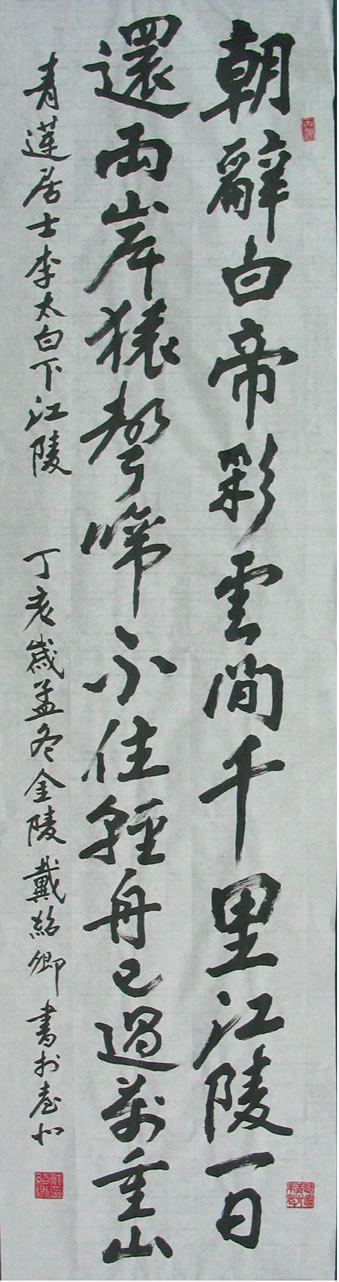 朝辭白帝彩雲間千里江陵一日
還兩岸猿聲啼不住輕舟已過萬重山
青蓮居士李太白下江陵 丁亥歲孟冬金陵戴紹卿書於臺北